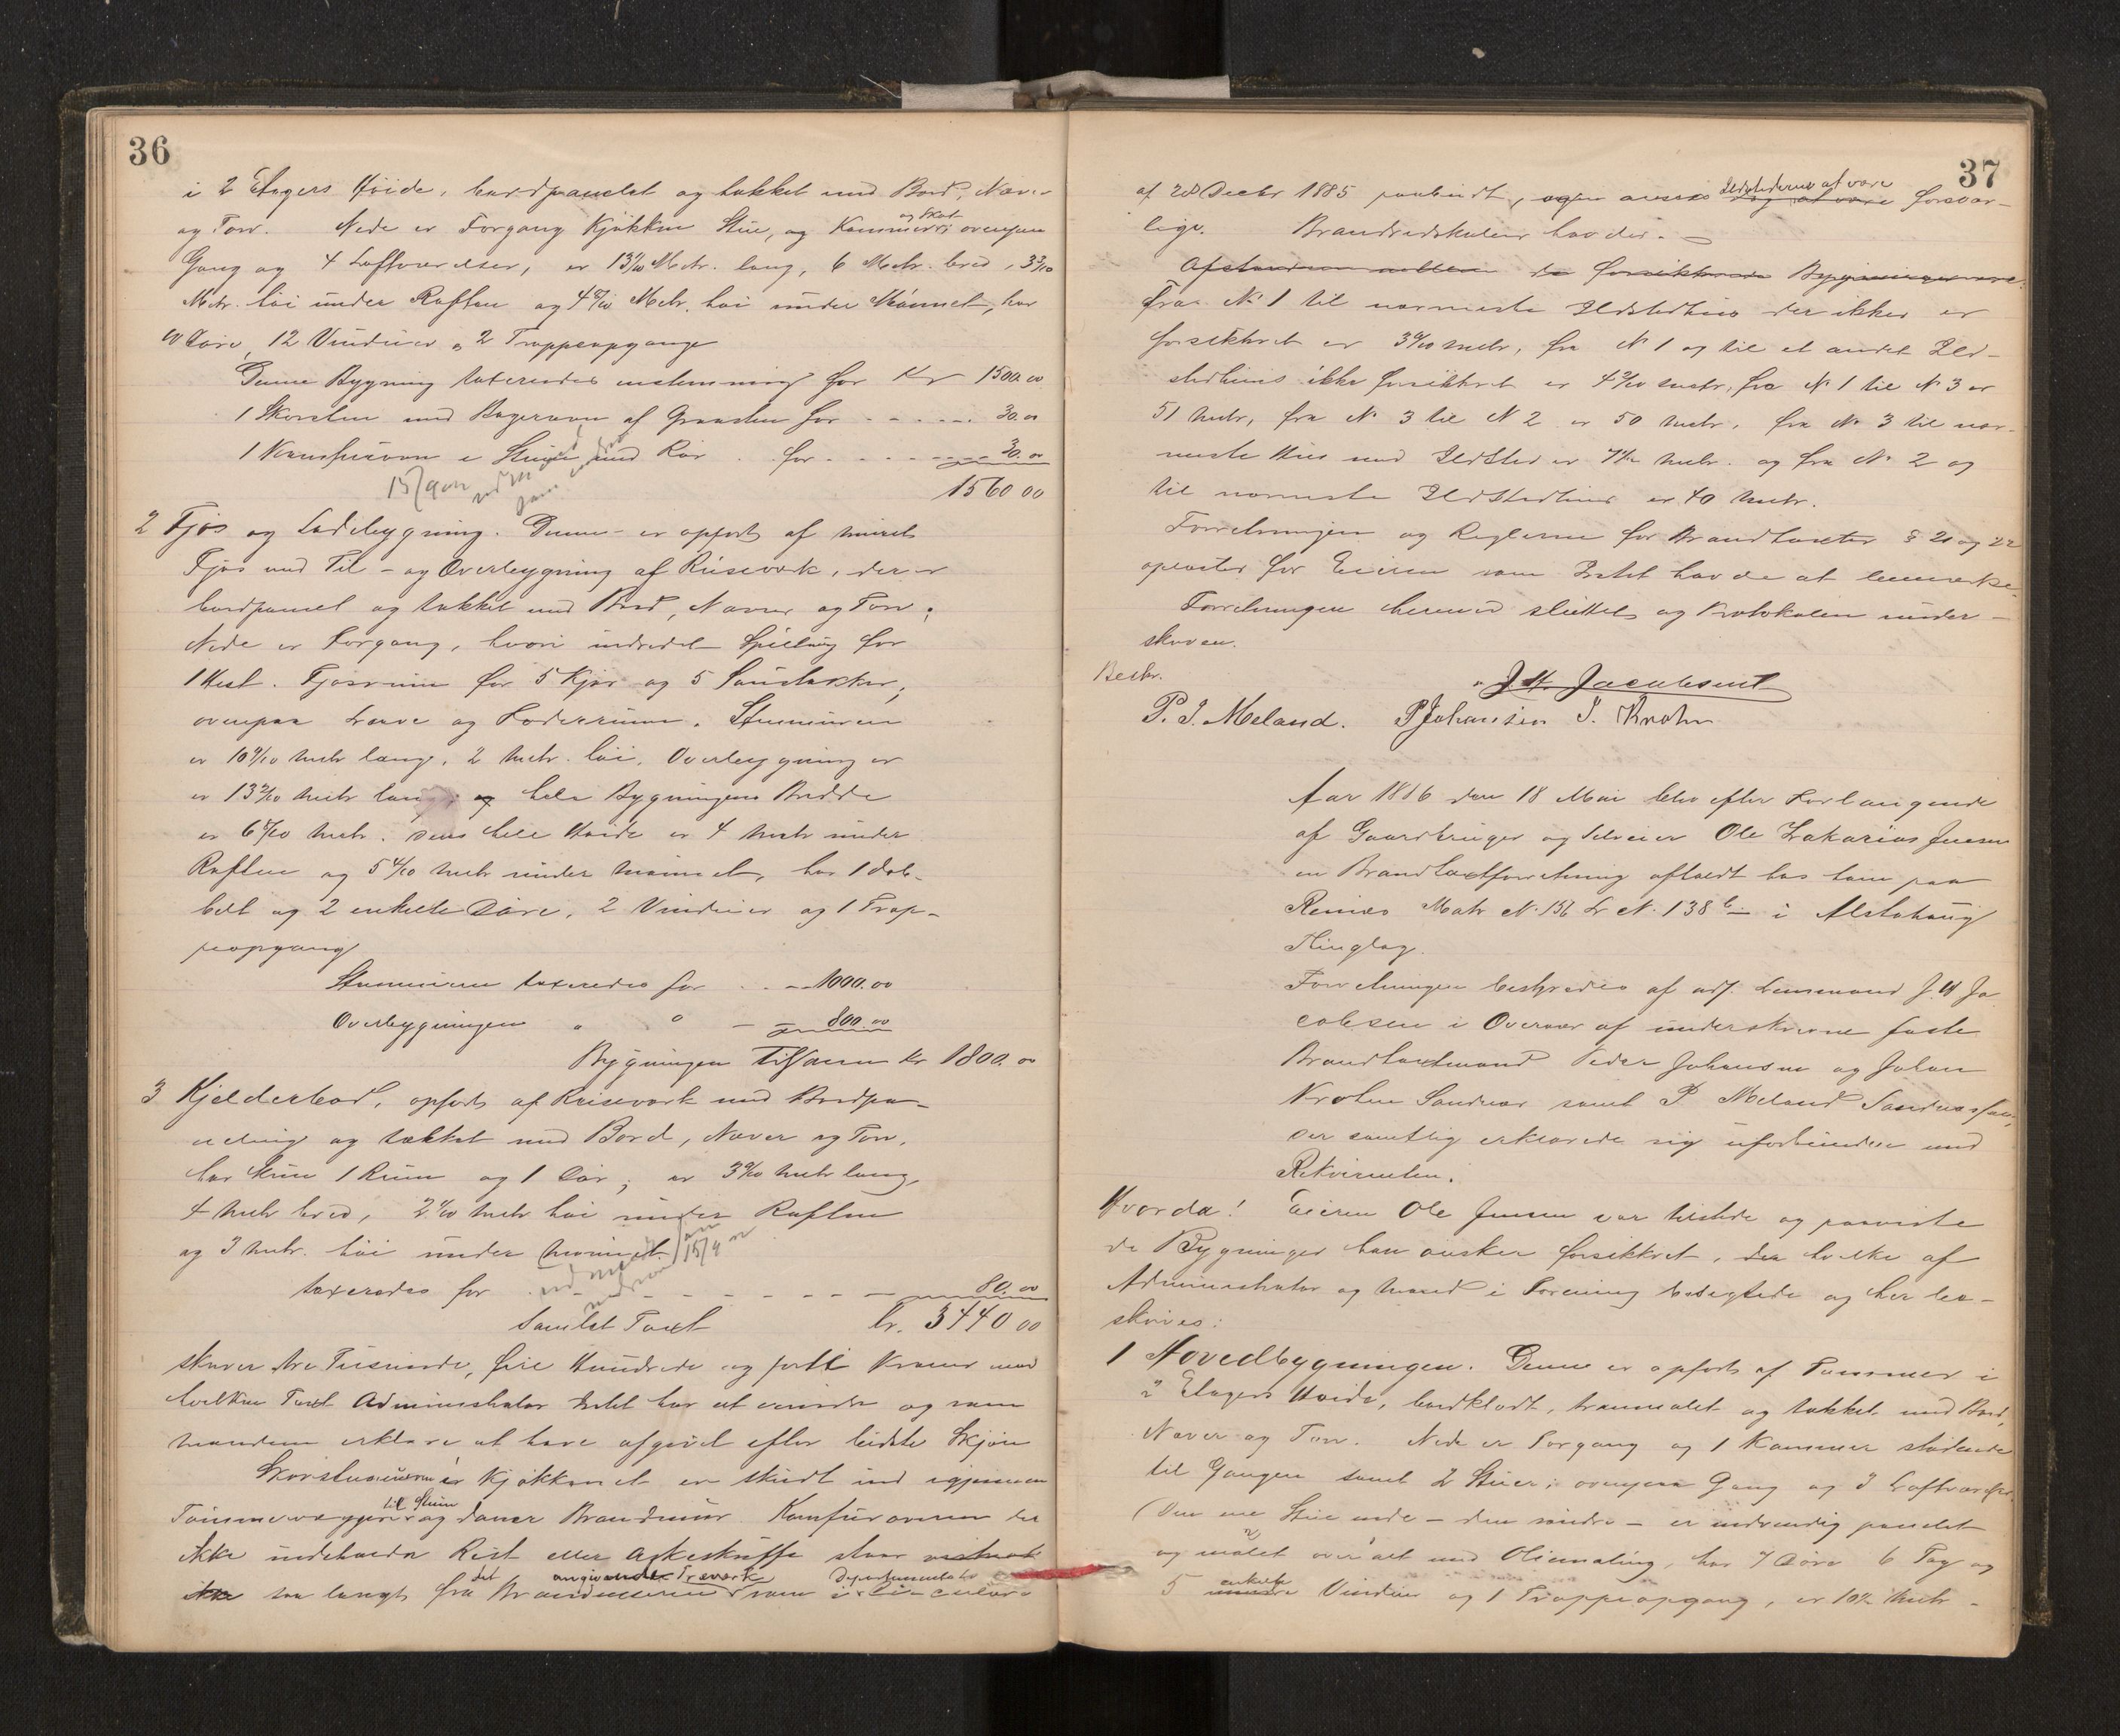 36
i 2 Etagers Høide, bordpanelet og tækket med Bord, Næver
og Torv. Nede er Forgang Kjøkken Stue, og Kammers; ovenpaa
og Skot
Gang og 4 Loftværelser, er 13 7/10 Metr. lang, 6 Metr. bred, 3 3/10
Metr. høi under Raften og 4 9/10 Metr. høi under Mønnet, har
10 Døre, 12 Vinduer, 2 Trappeopgange
Denne Bygning taxeredes enstemmig for Kr 1500.00
1 Skorsten med Bagerovn af Graasten for - - - - 30.00
1 Komfurovn i Stuen med Rør for - - - - - 30.00
1560 00
2 Fjøs og Ladebygning. Denne er opført af muret
Fjøs med Til- og Overbygning af Reisverk, der er
bordpanel og tækket med Bord, Næver og Torv;
Nede er Forgang, hvori indredet Spiltaug for
1 Hest. Fjøsrum for 5 Kjør og 5 Sauetakker,
ovenpaa Laave og Foderrum. Stenmuren
er 10 9/10 Metr lang, 2 Metr. høi. Overbygning er
er 13 2/10 Metr lang; og hele Bygningens Bredde
er 6 5/10 Metr. dens hele Høide er 4 Metr under
Raften og 5 4/10 Metr under Mønnet, har 1 dob-
belt og 2 enkelte Døre, 2 Vinduer og 1 Trap-
peopgang
Stenmuren taxeredes for - - - 1000.00
Overbygningen " " - 800.00
Bygningen Tilsamn Kr 1800.00
3 Kjelderbod, opført af Reisverk med Bordpa-
neling og tækket med Bord, Næver og Torv,
har kun 1 Rum og 1 Dør; er 3 9/10 Metr lang,
4 Metr bred, Metr høi under Raften
og 3 Metr. høi under Mønnet.
taxeredes for - - - - - - - 80.00
Samlet Taxt Kr. 3440 00
skriver tre Tusinde, fire Hundrede og forti Kroner mod
hvilken Taxt Administrator Intet har at erindre og som
Mændene erklære at have afgivet efter bedste Skjøn
Skorstenmuren i Kjøkkenet er skudt ind igjennem
Tømmervæggen og danner Brandmur. Komfurovnen der
til Stuen
ikke indeholder Rist eller Askeskuffe staar
ikke saa langt fra Brandmuren som i Circulære
det angivende Træverk Departementets
37
af 28 Decbr 1885 paabudt, ansees forsvar-
Ildstederne at være
lige. Brandredskaber havdes.
Afstanden mellem de forsikkrede Bygninger
Fra No 1 til nærmeste Ildstedhus der ikke er
forsikkret er 3 4/10 Metr, fra No 1 og til et andet Ild-
stedhus ikke forsikkret er 4 2/10 Metr, fra No 1 til No 3 er
51 Metr, fra No 3 til N 2 er 50 Metr, fra No 3 til nær-
meste Hus med Ildsted er Metr. og fra No 2 og
til nærmeste Ildstedhus er 40 Metr.
Forretningen og Reglerne for Brandtaxter § 21 og 22
oplæstes for Eieren som Intet havde at bemærke.
Forretningen hermed sluttet og Protokolen under-
skreven.
Bestr.
J. H. Jacobsen
P. J. Meland. P Johansen J. Krohn
Aar 1886 den 18 Mai blev efter Forlangende
af Gaardbruger og Selveier Ole Zakarias Jensen
en Brandtaxtforretning afholdt hos ham paa
Reinæs Matr No. 156 Lr No. 138 b i Alstahaug
Thinglag.
Forretningen bestyredes af adj. Lensmand J. H Ja
cobsen i Overvær af underskrevne faste
Brandtaxtmænd Peder Johansen og Johan
Krohn Sandvær samt P Meland
der samtlig erklærede sig uforbundne med
Rekvirenten.
Hvorda! Eieren Ole Jensen var tilstede og paaviste
de Bygninger han ønsker forsikkret, der hvilke af
Administrator og Mænd i Forening besigtede og her be-
skrives:
1 Hovedbygningen. Denne er opført af Tømmer i
2 Etagers Høide, bordklædt, og tækket med Bord,
Næver og Torv. Nede er Forgang og 1 Kammer stødende
til Gangen samt 2 Stuer; ovenpaa Gang og 3 Loftværelser.
(Den ene Stue nede - den søndre - er indvendig panelet
og malet over alt med Oliemaling, har 7 Døre 6 Fag og
5 Vinduer og 1 Trappeopgang, er Metr
enkelte